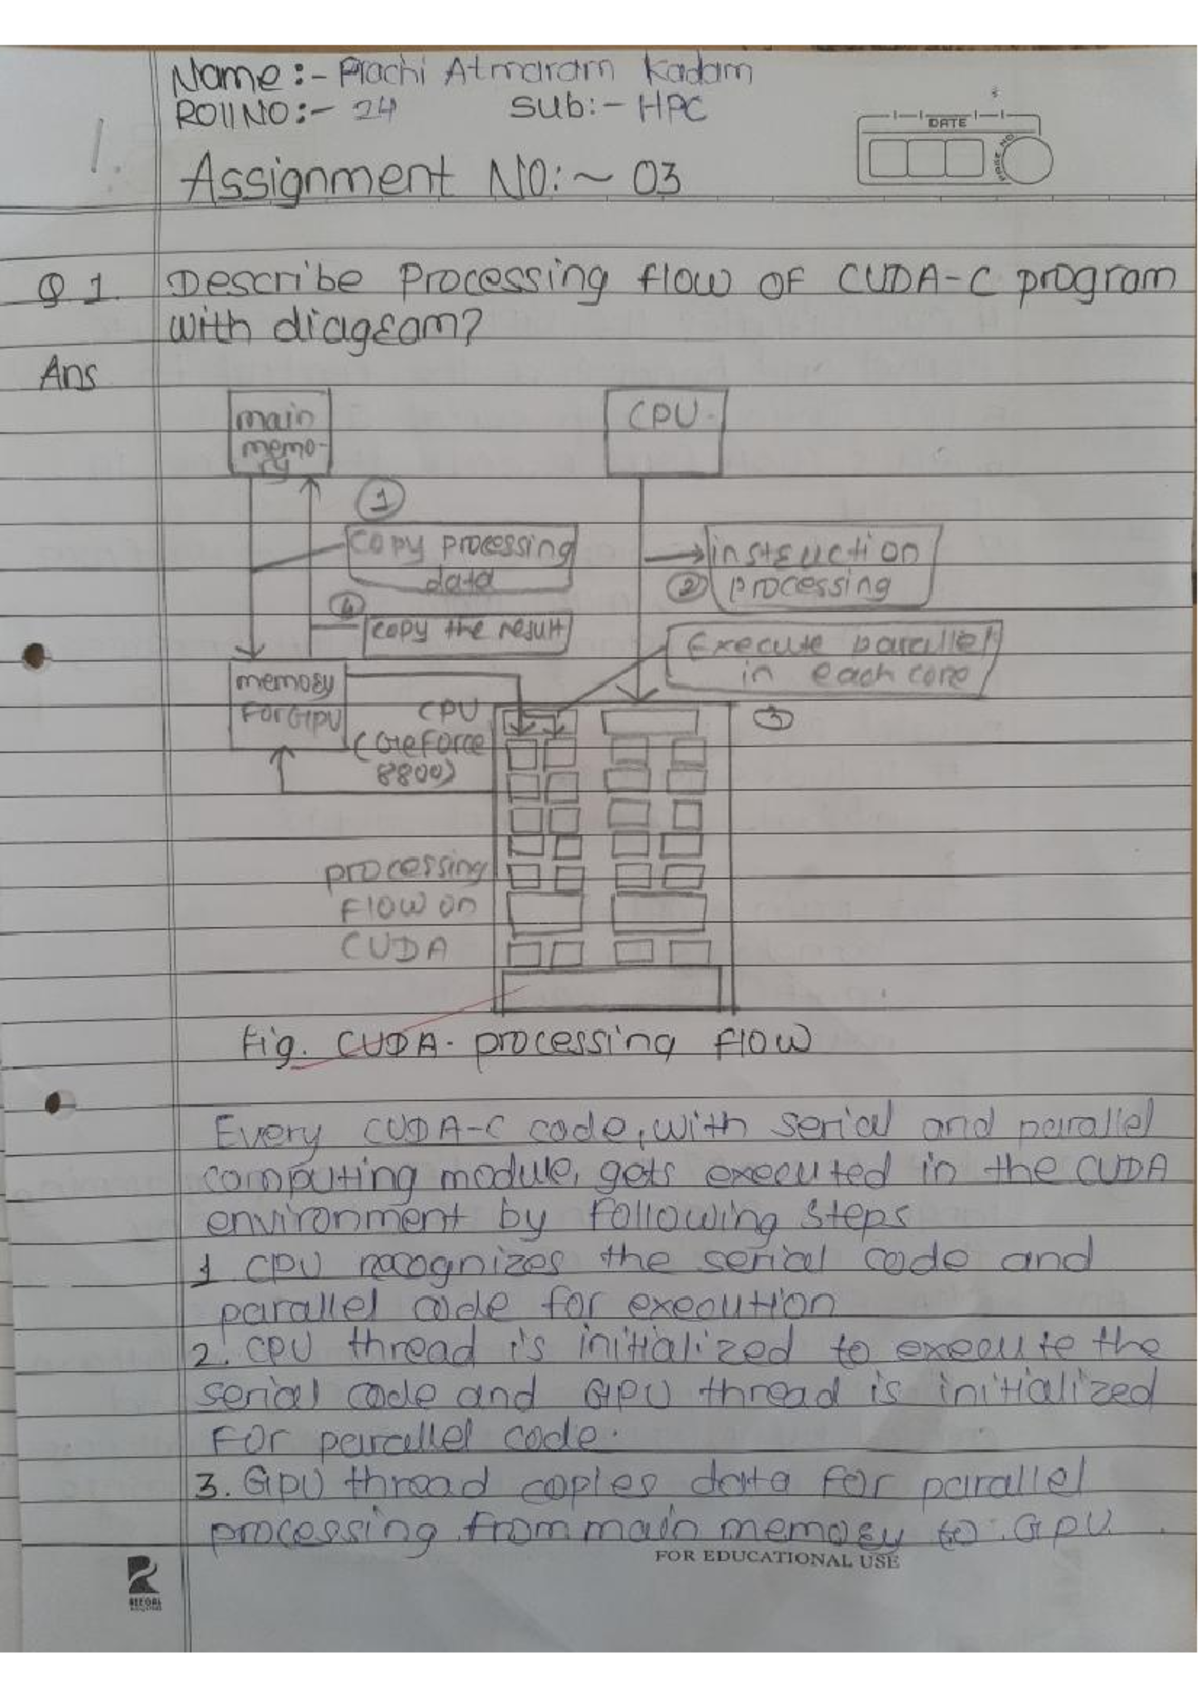 Name :- Prachi Atmaram Kadam
Roll NO :- 24 Sub :- HPC
DATE
PAGE NO.
1.
Assignment NO:~ 03
Q 1. Describe Processing flow of CUDA-C program
with diagram?
Ans
main
memo-
ry
CPU
1
copy processing
data
instruction
2 processing
4
copy the result
Execute parallel
in each core
3
memory
For GPU
CPU
(GeForce
8800)
processing
Flow on
CUDA
Fig. CUDA - processing flow
Every CUDA-C code, with serial and parallel
computing module, gets executed in the CUDA
environment by following steps
1 CPU recognizes the serial code and
parallel code for execution
2. CPU thread is initialized to execute the
serial code and GPU thread is initialized
For parallel code.
3. GPU thread copies data for parallel
processing from main memory to GPU
FOR EDUCATIONAL USE